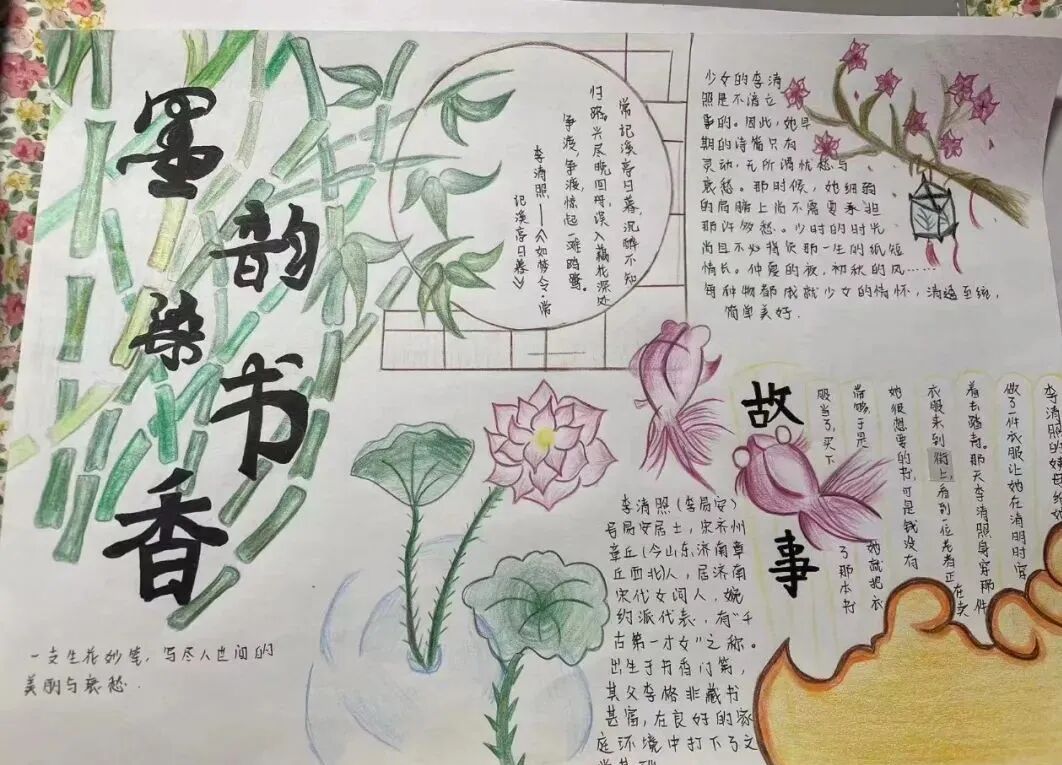 墨
韵
染
书
香
常记溪亭日暮,沉醉不知
归路,兴尽晚回舟,误入藕花深处
争渡,争渡,惊起一滩鸥鹭。
李清照——《如梦令·常
记溪亭日暮》
少女的李清
照是不谙立
事的。因此,她早
期的诗篇只有
灵动,无所谓忧愁与
哀愁。那时候,她细弱
的肩膀上尚不需要承担
那许多愁。少时的时光
尚且不必背负那一生的纸短
情长。仲夏的夜,初秋的风……
每种物都成就少女的情怀,清逸至纯,
简单美好.
故
事
李清照的姨母给她
做了件衣服让她在清明时穿
着去踏青。那天李清照身穿那件
衣服来到街上,看到一位老者正在卖
她很想要的书,可是钱没有
带够,于是她就把衣
服当了,买下了那本书
李清照(李易安)
号易安居士,宋齐州
章丘(今山东济南章
丘西北)人,居济南
宋代女词人,婉
约派代表,有“千
古第一才女”之称。
出生于书香门第,
其父李格非藏书
甚富,在良好的家
庭环境中打下了文
一支生花妙笔,写尽人世间的
美丽与哀愁.